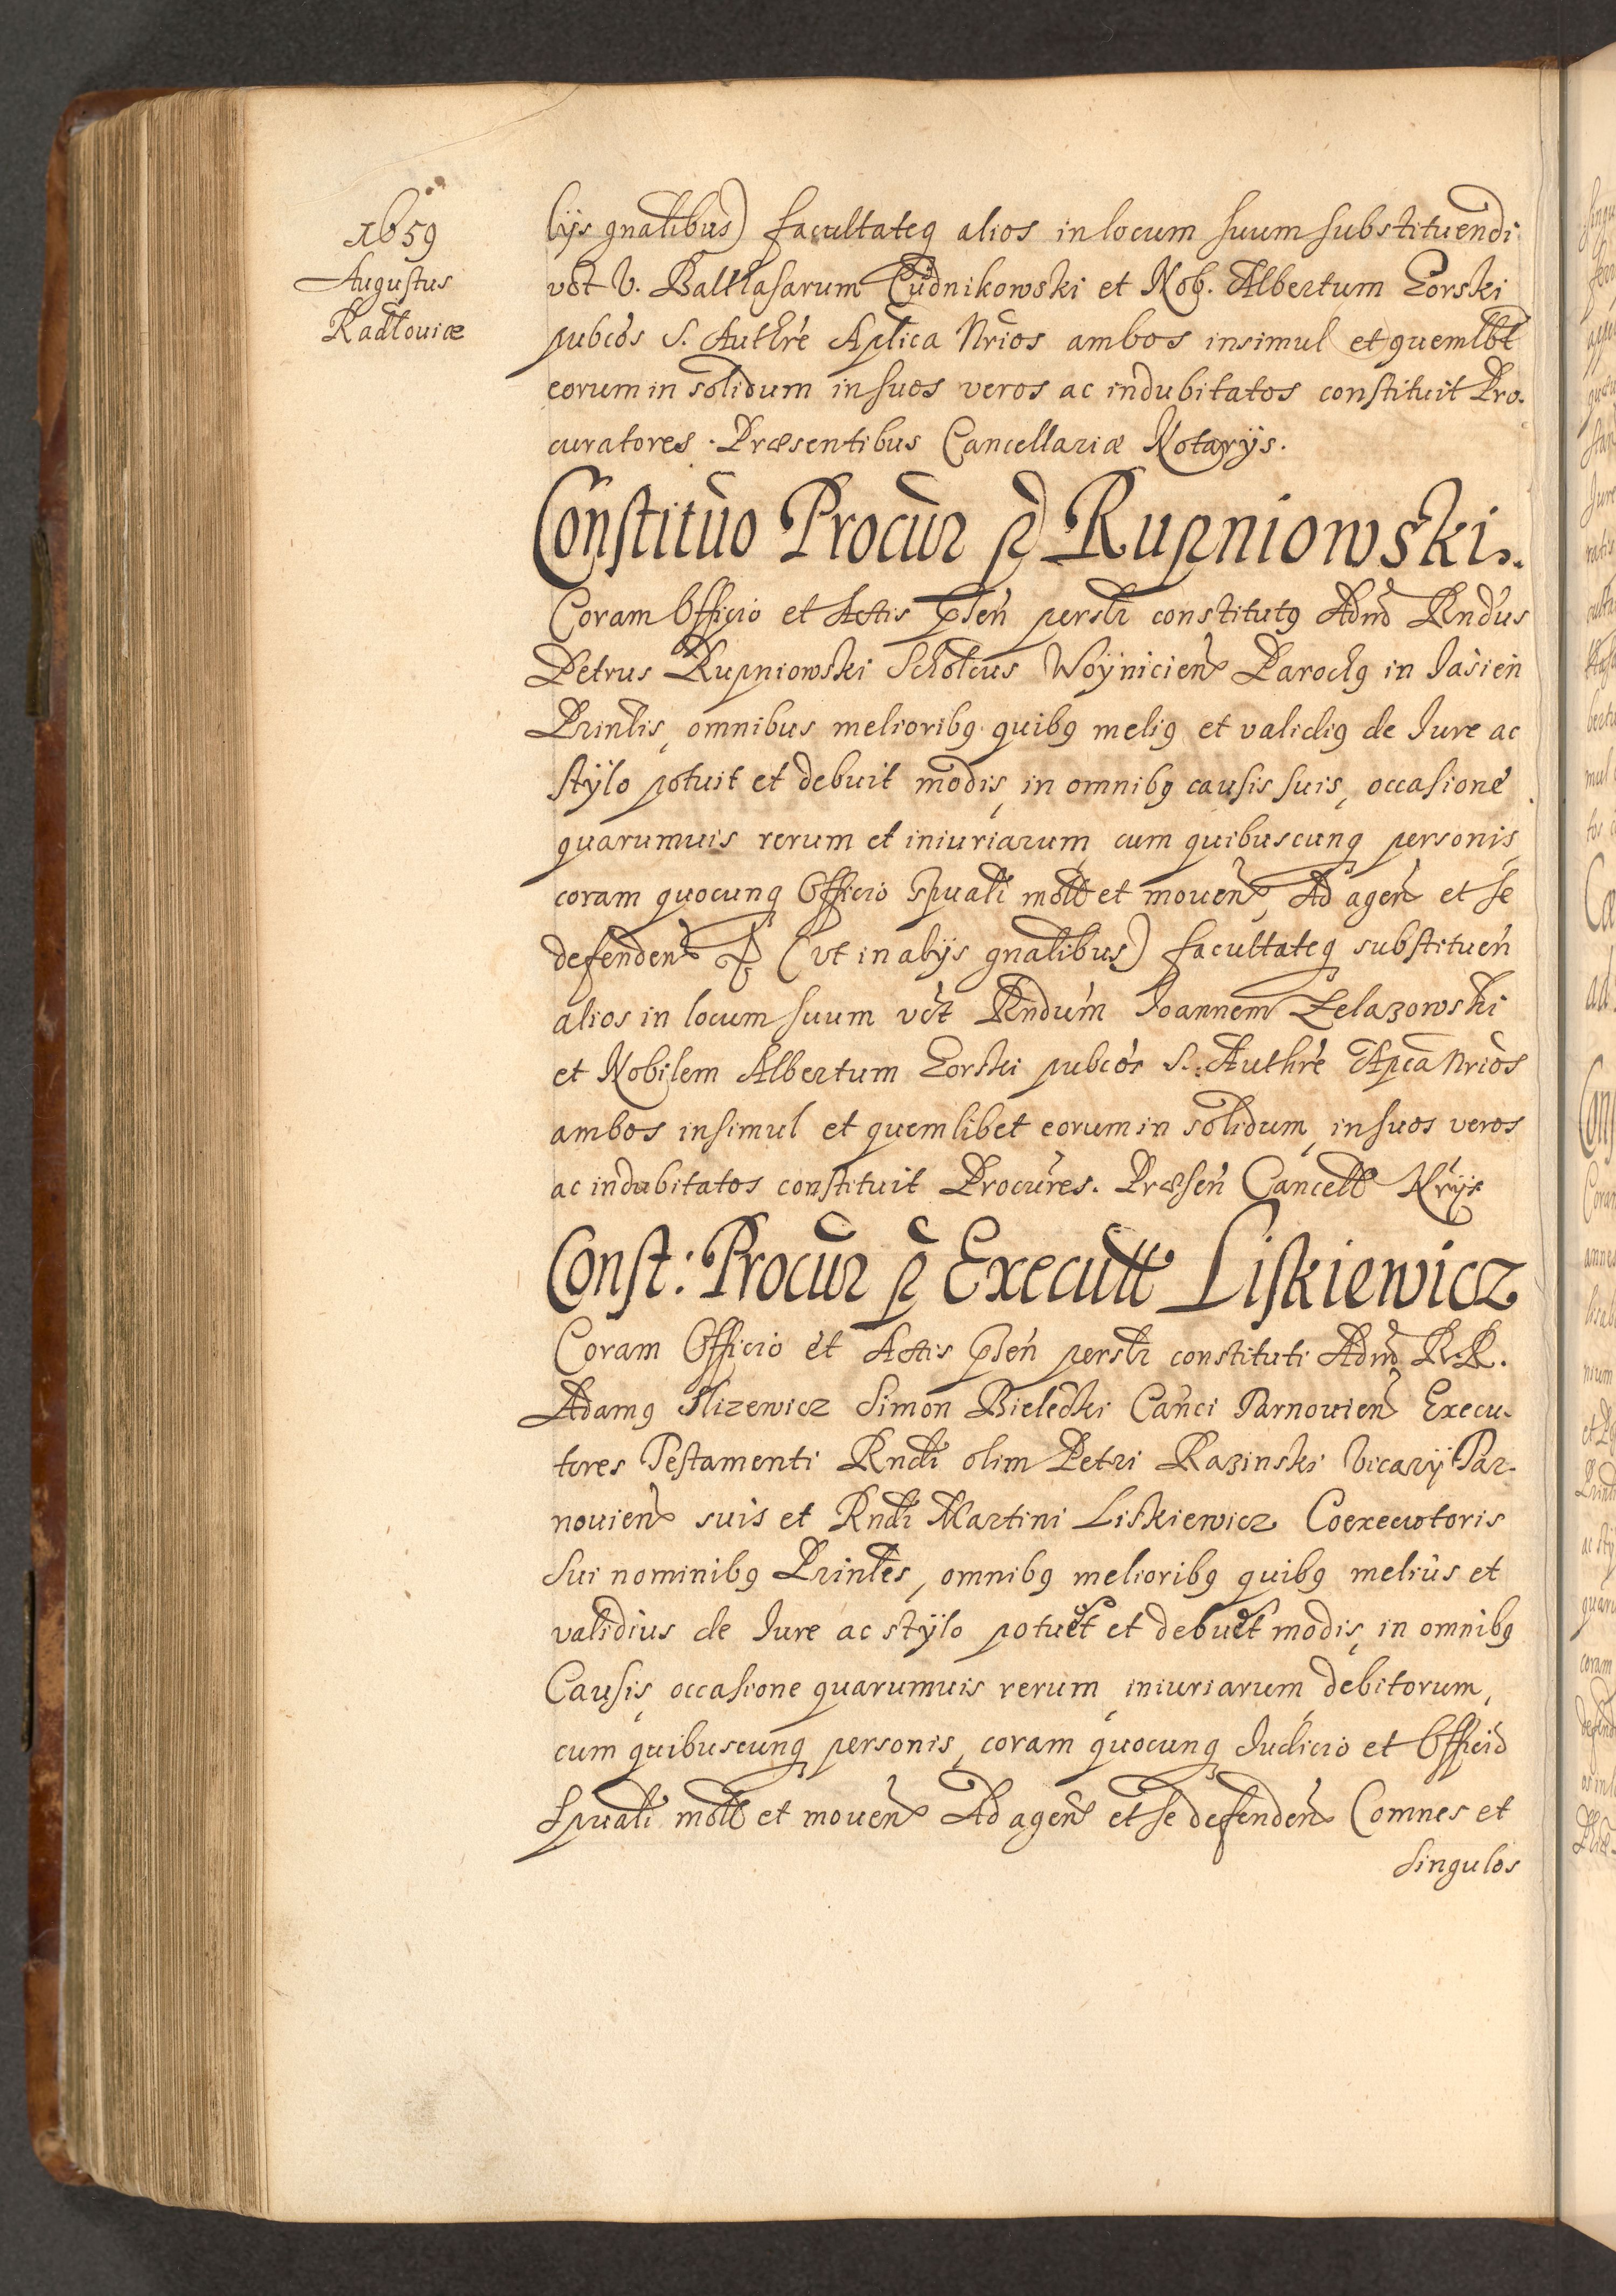 1659
Augustus
Radłouiæ
lÿs gnalibus) facultateq alios in locum suum substituendi
vdt V. Balthasarum Cudnikowski et Nob. Albertum Gorski
pubcos S. Authre Aplica Nrios ambos insimul et quemlbt
eorum in solidum in suos veros ac indubitatos constituit Pro-
curatores. Præsentibus Cancellariæ Notarÿs.
Constituo Procur p Rupniowski.
Coram Officio et Actis psen persлr constitutg Admd Rndus
Petrus Rupniowski Scholcus Woÿnicien Parochg in Jasien
Printis, omnibus melioribg quibg melig et validig de Jure ac
stÿlo potuit et debuit modis, in omnibg causis suis, occasione
quarumuis rerum et iniuriarum, cum quibuscunq personis,
coram quocunq Officio Spuali mott et mouen, Ad agen et se
defenden (vt in alÿs gnalibus) facultateq substituen
alios in locum suum vdt Rndum Joannem Zelazowski
et Nobilem Albertum Gorski pubcos S. Authre Apca Nrios
ambos insimul et quemlibet eorum in solidum, in suos veros
ac indubitatos constituit Procures. Præsen Cancell Nrÿs
Const: Procur p Executt Liskiewicz
Coram Officio et Actis psen perslr constituti Admd R.R.
Adamg Slizewicz Simon Bielecki Canci Tarnouien Execu-
tores Testamenti Rndi olim Petri Razinski Vicarÿ Tar-
nouien suis et Rndi Martini Liskiewicz Coexecutoris
Sui nominibg Printes, omnibg melioribg quibg melius et
validius de Jure ac stÿlo potuert et debuert modis, in omnibg
Causis, occasione quarumuis rerum, iniuriarum, debitorum,
cum quibuscunq personis, coram quocunq Judicio et Officio
Spuali mott et mouen Ad agen et se defenden (omnes et
Singulos